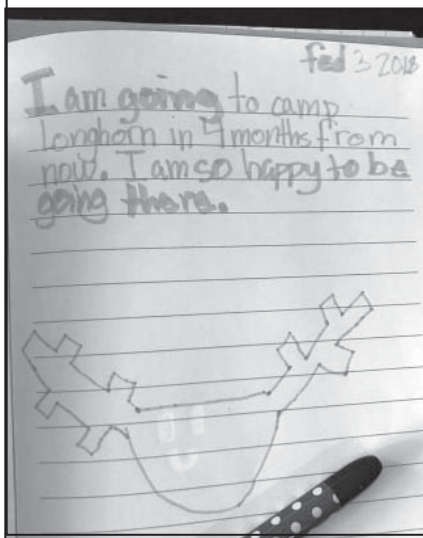 fed 3 2018
I am going to camp
longhorn in 4 months from
now. I am so happy to be
going there.